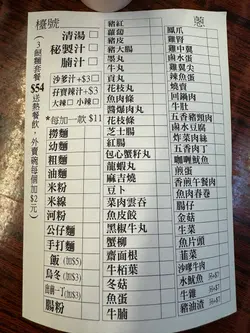 檯號
清湯
秘製汁
腩汁
沙爹汁+$3
大辣 小辣
*每加一款 $11
撈麵
幼麵
粗麵
油麵
米粉
米線
河粉
公仔麵
手打麵
飯(加$5)
烏冬(加$3)
腸粉
(3餸麵套餐 $54 送熱餐飲,外賣碗每個加$2元)
豬紅
蘿蔔
豬皮
豬大腸
墨丸
牛丸
貢丸
花枝丸
醬爆肉丸
花枝丸
芝士腸
紅腸
包心魷魚丸
龍蝦丸
麻吉燒
豆卜
菜肉雲吞
魚皮餃
黑椒牛丸
蟹柳
齋面根
牛栢葉
冬菇
魚蛋
牛腩
蔥
鳳爪
雞腎
雞中翼
鹵水蛋
雞翼尖
辣魚蛋
燒賣
回鍋肉
牛肚
五香豬頸肉
鹵水豆腐
炸菜肉絲
五香肉丁
咖喱魷魚
煎蛋
香煎午餐肉
魚肉春卷
腸仔
金菇
生菜
魚片頭
韮菜
沙嗲牛肉
水魷魚(+$1)
牛雜(+$2)
豬油渣(+$2)